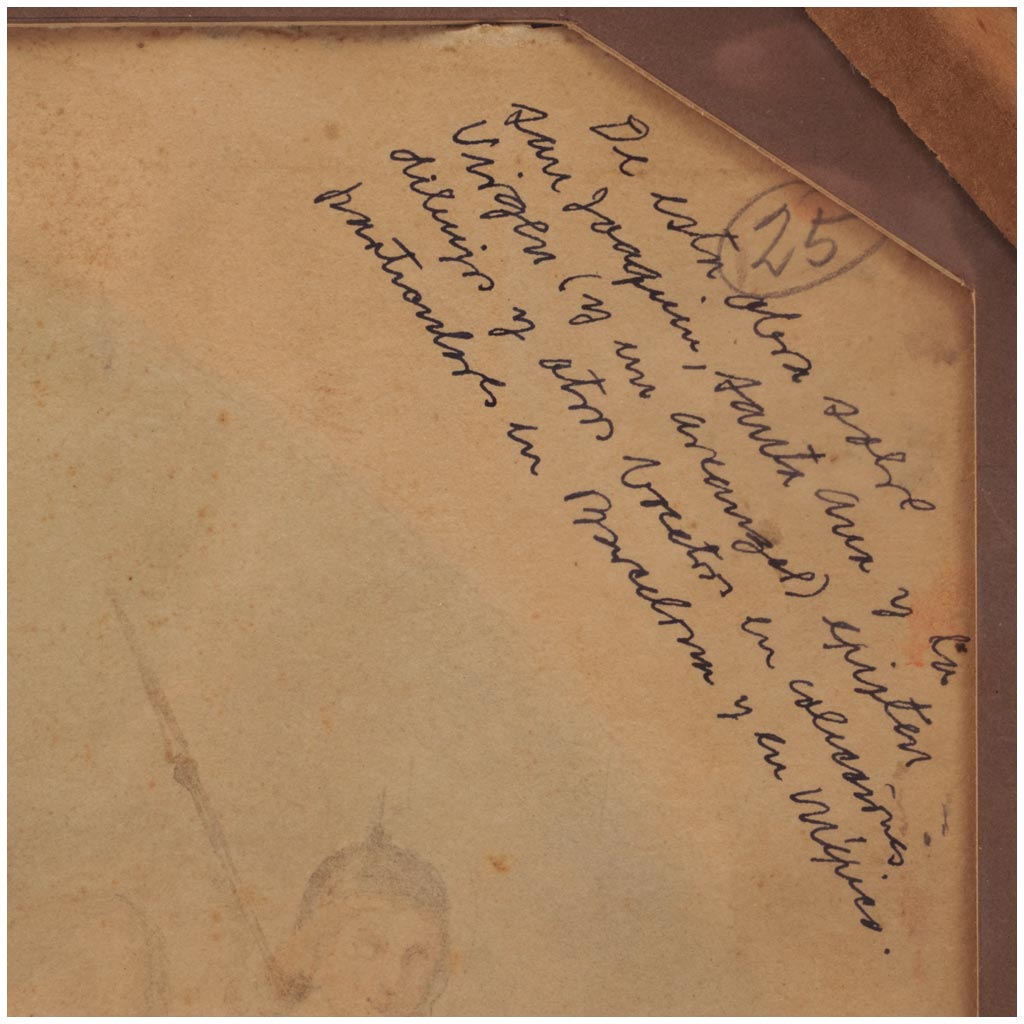 De esta obra sobre
san Joaquin, santa ana y la
Virgen (y un arcangel) existen
dibujos y otros bocetos en colecciones
particulares en Barcelona y en México.
25